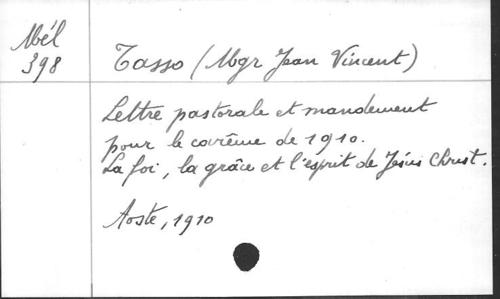 Mél
398
Tasso (Mgr Jean Vincent)
Lettre pastorale et mandement
pour le carême de 1910.
La foi, la grâce et l'esprit de Jésus Christ.
Aoste, 1910